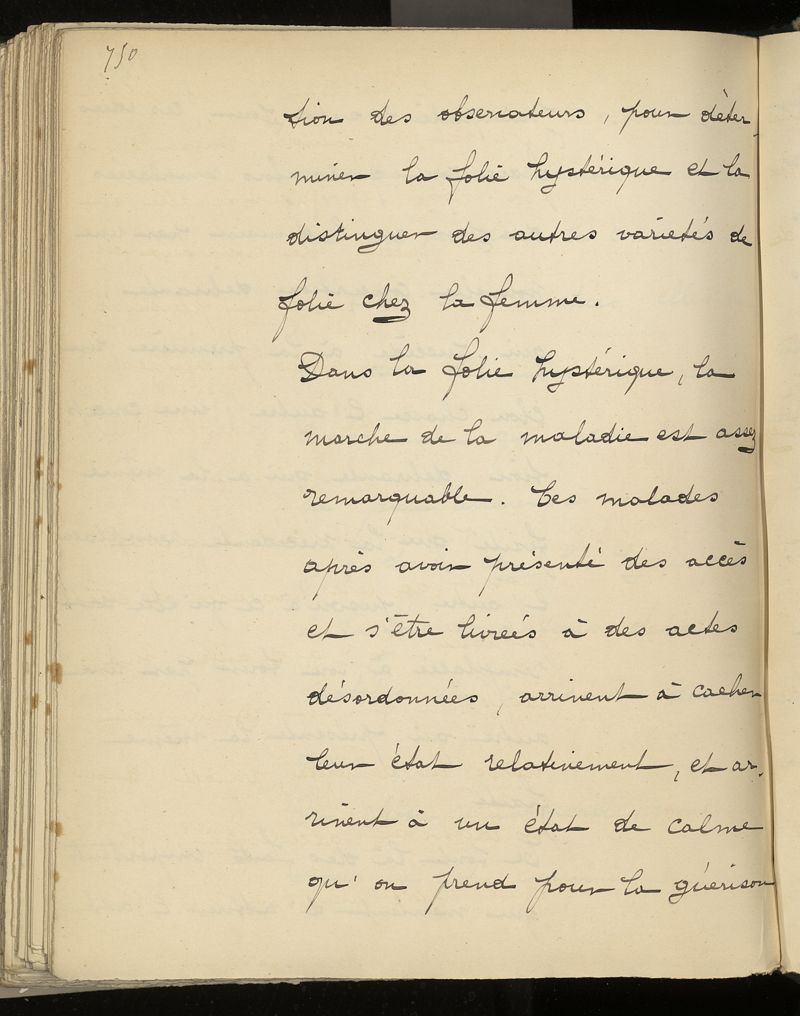 750
tion des observateurs, pour déter-
miner la folie hystérique et la
distinguer des autres variétés de
folie chez la femme.
Dans la folie hystérique, la
marche de la maladie est assez
remarquable. Ces malades
après avoir présenté des accès
et s'être livrées à des actes
désordonnées, arrivent à cacher
leur état relativement, et ar-
rivent à un état de calme
qu'on prend pour la guérison